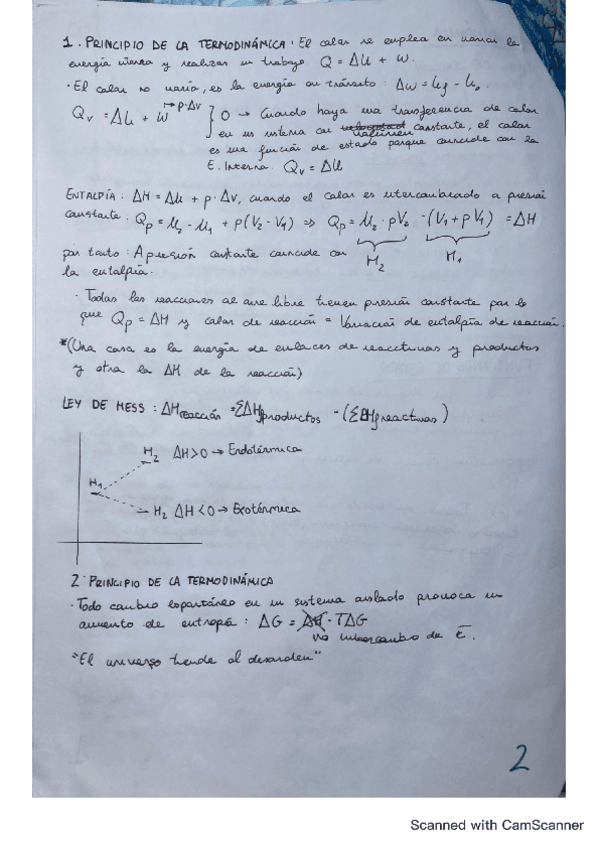 1. PRINCIPIO DE LA TERMODINÁMICA. El calor se emplea en variar la
energía interna y realizar un trabajo Q = ΔU + W.
· El calor no varía, es la energía en tránsito: ΔW = U_f - U_o.
Q_v = ΔU + W → p·ΔV } 0 → Cuando haya una transferencia de calor
en un sistema con volumen constante, el calor
es una función de estado porque coincide con la
E. Interna. Q_v = ΔU
ENTALPÍA: ΔH = ΔU + p·ΔV, cuando el calor es intercambiado a presión
constante. Q_p = U_2 - U_1 + p(V_2 - V_1) ⇒ Q_p = U_2 · pV_2 - (V_1 + pV_1) = ΔH
por tanto: A presión constante coincide con H_2 H_1
la entalpía.
· Todas las reacciones al aire libre tienen presión constante por lo
que Q_p = ΔH y calor de reacción = Variación de entalpía de reacción.
*(Una cosa es la energía de enlaces de reactivos y productos
y otra la ΔH de la reacción)
LEY DE HESS: ΔH reacción = ΣΔHf productos - (ΣΔHf reactivos)
H_2 ΔH>0 → Endotérmica
H_1
H_2 ΔH<0 → Exotérmica
2· PRINCIPIO DE LA TERMODINÁMICA
· Todo cambio espontáneo en un sistema aislado provoca un
aumento de entropía: ΔG = ΔH · TΔG
no intercambio de E.
"El universo tiende al desorden"
2
Scanned with CamScanner